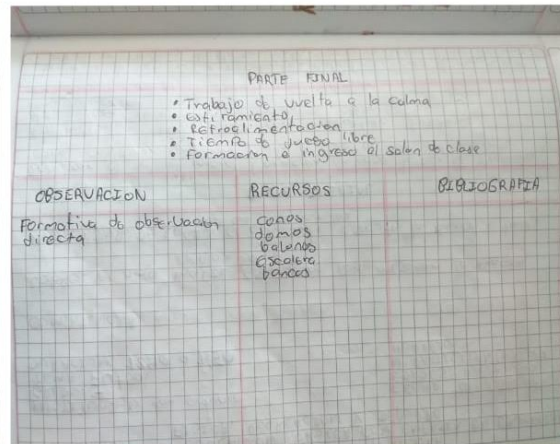 PARTE FINAL
• Trabajo de vuelta a la calma
• estiramiento
• Retroalimentacion
• Tiempo de juego libre
• formacion e ingreso al salon de clase
OBSERVACION
RECURSOS
BIBLIOGRAFIA
Formativa de observacion
directa
conos
domos
balones
escalera
bancos